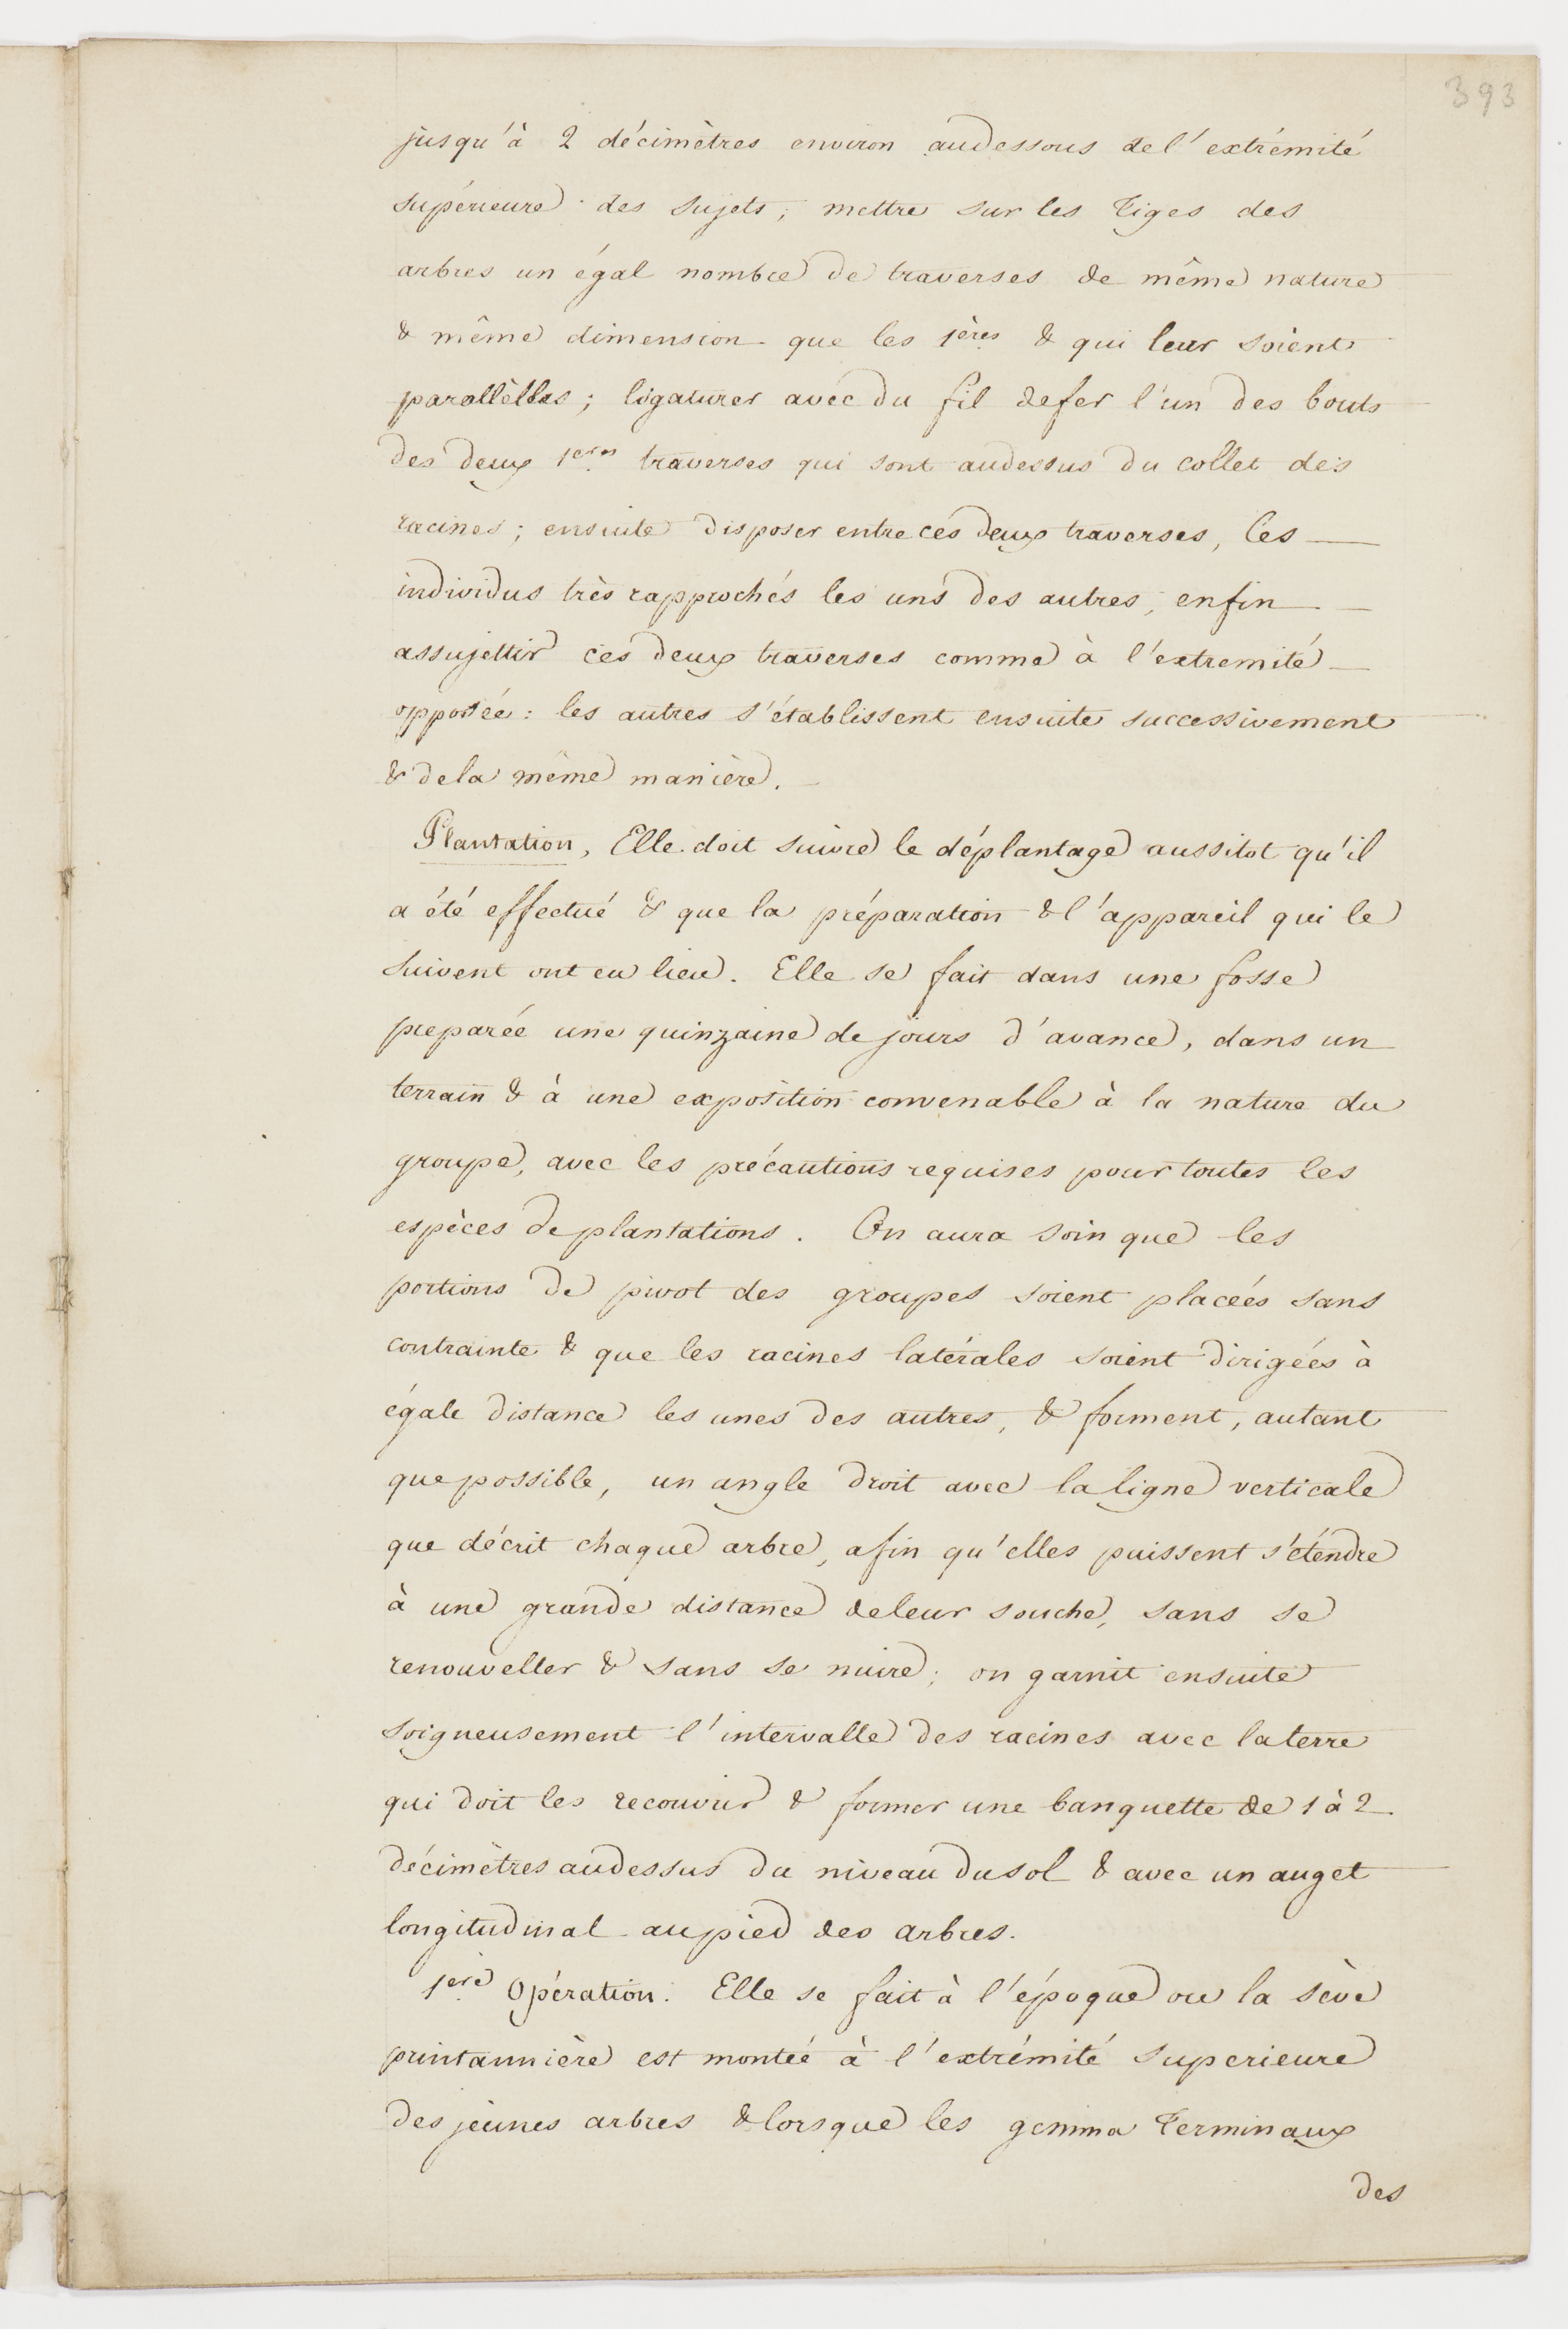 393
jusqu'à 2 décimètres environ audessous de l'extrémité
supérieure des sujets; mettre sur les tiges des
arbres un égal nombre de traverses de même nature
& même dimension que les 1ères & qui leur soient
parallèlles; ligaturer avec du fil defer l'un des bouts
des deux 1eres traverses qui sont audessus du collet des
racines; ensuite disposer entre ces deux traverses, les
individus très rapprochés les uns des autres; enfin
assujettir ces deux traverses comme à l'extremité
opposée: les autres s'établissent ensuite successivement
& dela même manière.
Plantation, Elle doit suivre le déplantage aussitot qu'il
a été effectué & que la préparation & l'appareil qui le
suivent ont eu lieu. Elle se fait dans une fosse
preparée une quinzaine de jours d'avance, dans un
terrain & à une exposition convenable à la nature du
groupe, avec les précautions requises pour toutes les
espèces de plantations. On aura soin que les
portions de pivot des groupes soient placées sans
contrainte & que les racines latérales soient dirigées à
égale distance les unes des autres, & forment, autant
que possible, un angle droit avec la ligne verticale
que décrit chaque arbre, afin qu'elles puissent s'étendre
à une grande distance deleur souche, sans se
renouveller & sans se nuire; on garnit ensuite
soigneusement l'intervalle des racines avec la terre
qui doit les recouvrir & former une banquette de 1 à 2
décimètres audessus du niveau du sol & avec un auget
longitudinal au pied des arbres.
1ère Opération. Elle se fait à l'époque ou la sève
printannière est montée à l'extrémité superieure
des jeunes arbres & lorsque les gemma terminaux
des